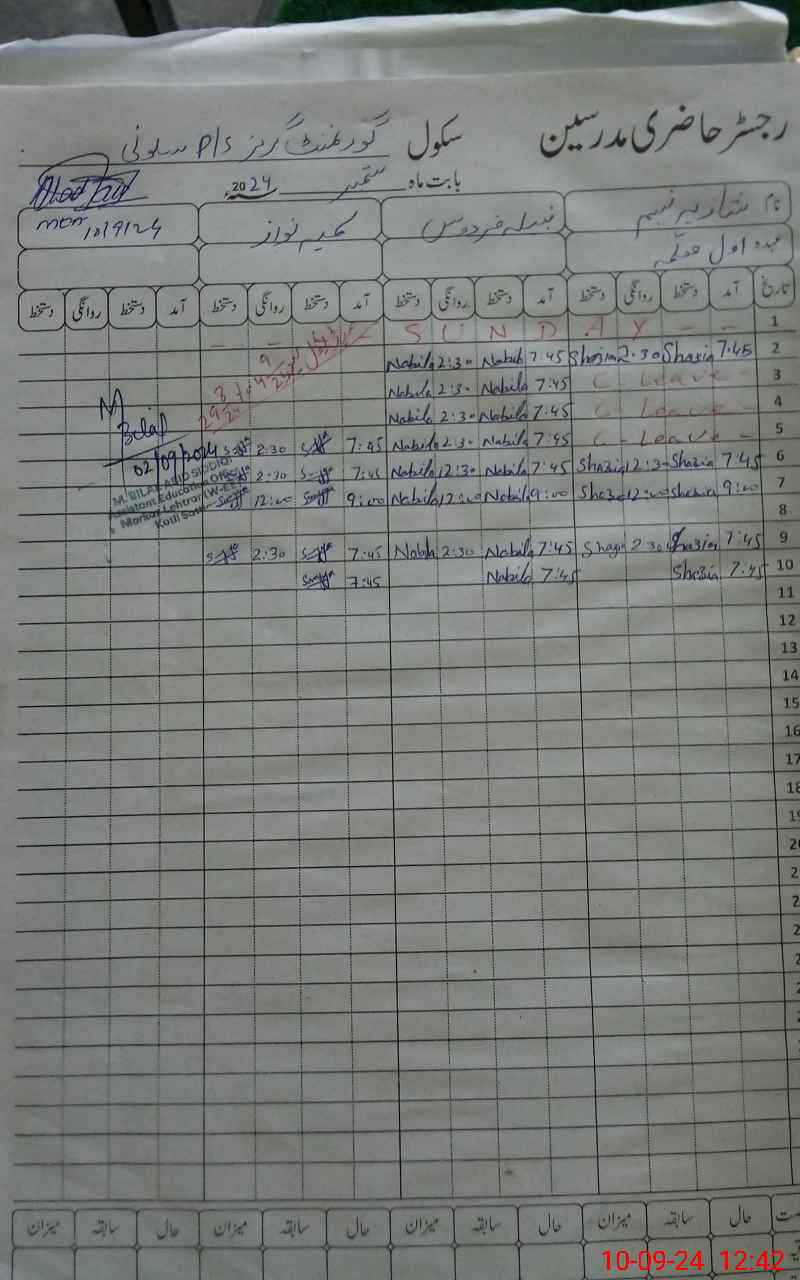 رجسٹر حاضری مدرسین سکول گورنمنٹ گرلز P/S سلونی
بابت ماہ ستمبر 2024
نام شازیہ نسیم نبیلہ فردوس نواز
10/9/24
عہدہ اول معلمہ
تاریخ آمد دستخط روانگی دستخط آمد دستخط روانگی دستخط آمد دستخط روانگی دستخط آمد دستخط روانگی دستخط
1 S U N D A Y - -
2 7:45 Shazia 2:30 Shazia 7:45 Nabila 2:30 Nabila
3 C Leave - 7:45 Nabila 2:30 Nabila
4 C Leave - 7:45 Nabila 2:30 Nabila
5 C - Leave - 7:45 Nabila 2:30 Nabila 7:45 2:30
6 7:45 Shazia 12:30 Shazia 7:45 Nabila 12:30 Nabila 7:45 2:30
7 9:00 Shazia 12:00 Shazia 9:00 Nabila 12:00 Nabila 9:00 12:00
8
9 7:45 Shazia 2:30 Shazia 7:45 Nabila 2:30 Nabila 7:45 2:30
10 7:45 Shazia 7:45 Nabila 7:45
11
12
13
14
15
16
17
M Bilal
02/09/2024
M. BILAL ABID SIDDIQI
Assistant Education Officer
Markaz Lehtrar (W-EE)
Kotli Sattian
حال سابقہ میزان حال سابقہ میزان حال سابقہ میزان حال سابقہ میزان
10-09-24 12:42